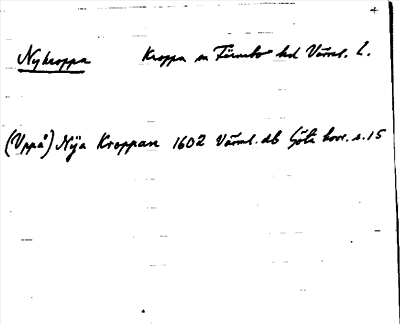 Nykroppa Kroppa sn Färnebo hd Värml. L.
(Uppå) Nÿa Kroppan 1602 Värml. db Göta hovr. s. 15